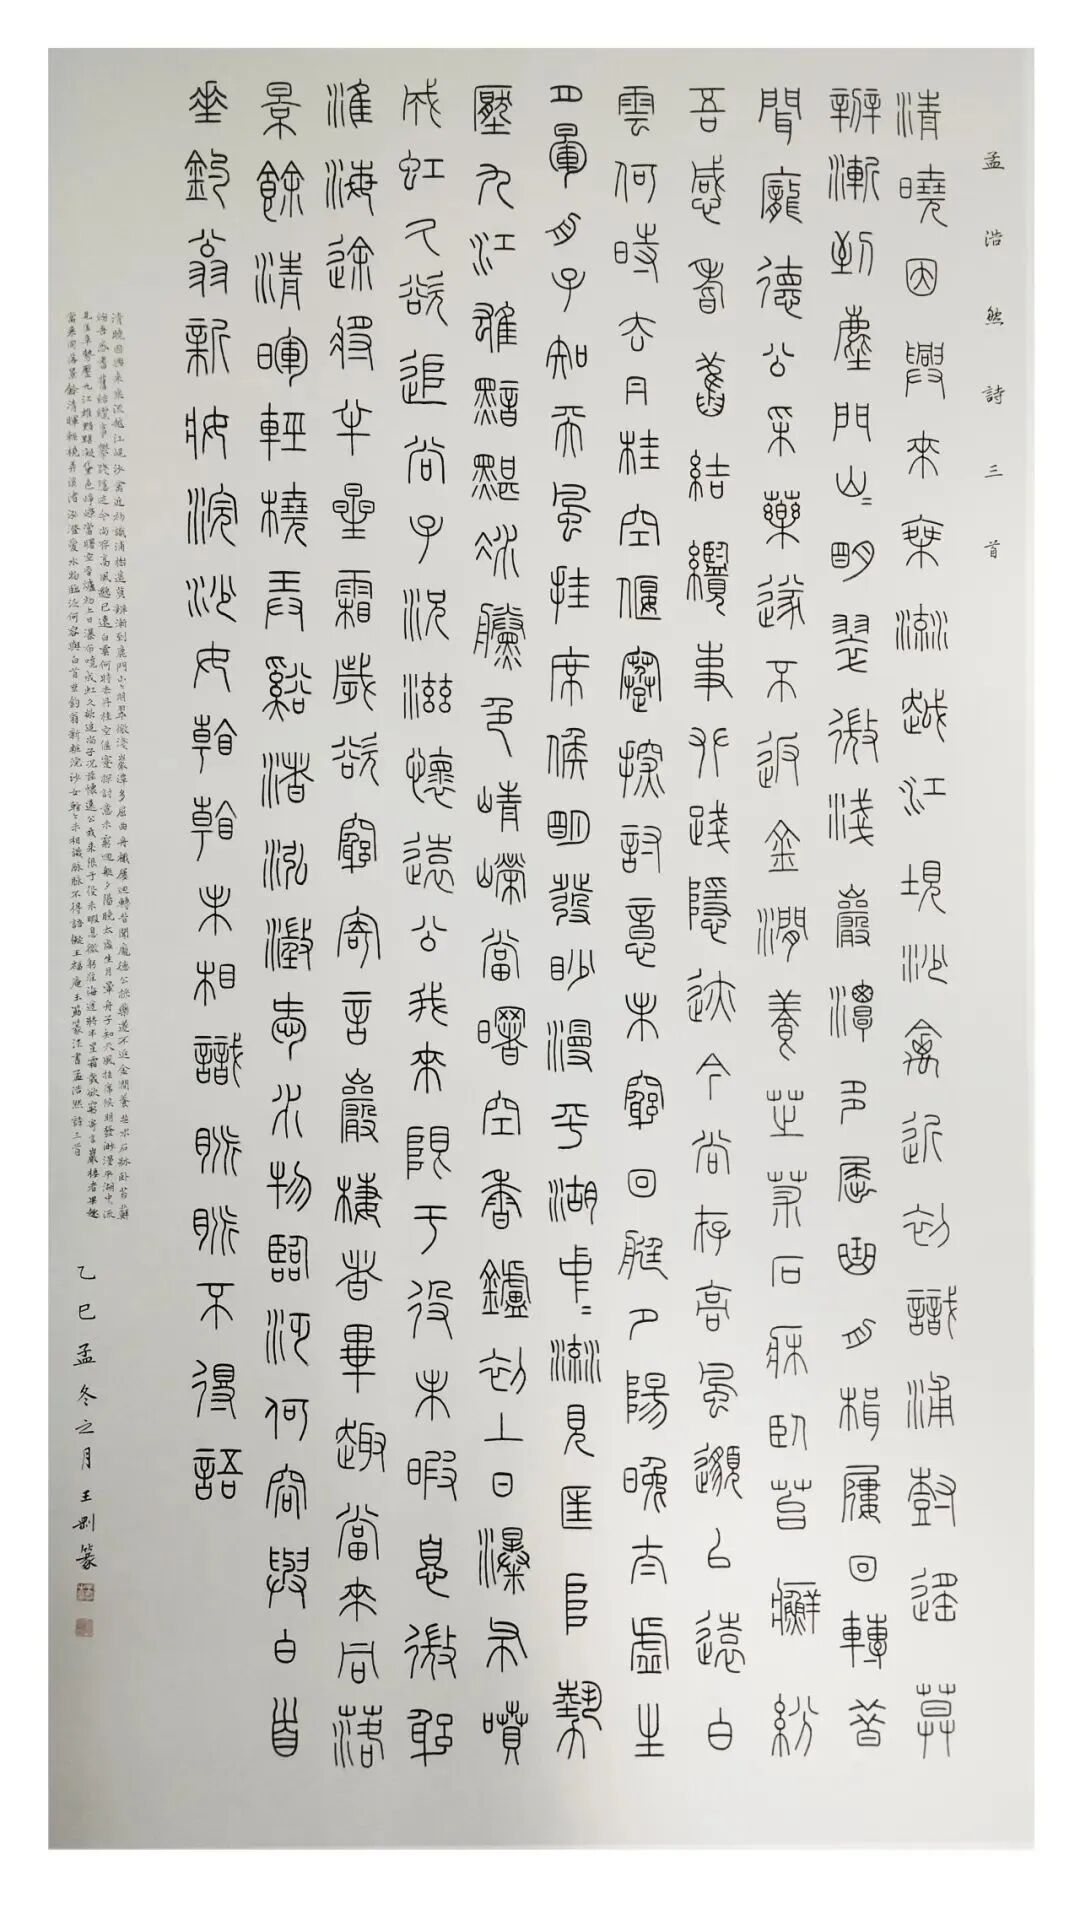 孟浩然詩三首
清曉因興來乘流越江峴沙禽近初識浦樹遥莫
辨漸到鹿門山〻明翠微淺巖潭多屈曲舟楫屢回轉昔
聞龐德公采藥遂不返金澗養芝术石床卧苔蘚紛
吾感耆舊結纜事攀踐隱迹今尚存高風邈已遠白
雲何時去丹桂空偃蹇探討意未窮回艇夕陽晚太虛生
月暈舟子知天風挂席候明發眇漫平湖中〻流見匡阜勢
壓九江雄黯黮凝黛色崢嶸當曙空香鑪初上日瀑布噴
成虹久欲追尚子況滋懷遠公我來限于役未暇息微躬
淮海途將半星霜歲欲窮寄言巖棲者畢趣當來同落
景餘清暉輕橈弄谿渚泓澂愛水物臨泛何容與白首
垂釣翁新妝浣沙女看看未相識脈脈不得語
清曉因興來乘流越江峴沙禽近初識浦樹遥莫辨漸到鹿門山〻明翠微淺巖潭多屈曲舟檝屢迴轉昔聞龐德公採藥遂不返金澗養芝术石床卧苔蘚
紛吾感耆舊結纜事攀踐隱迹今尚存高風邈已遠白雲何時去丹桂空偃蹇探討意未窮迴艇夕陽晚太虛生月暈舟子知天風挂席候明發渺漫平湖中〻流
見匡阜勢壓九江雄黯黮凝黛色崢嶸當曙空香爐初上日瀑布噴成虹久欲追尚子況茲懷遠公我來限于役未暇息微躬淮海途將半星霜歲欲窮寄言巖棲者畢趣
當來同落景餘清暉輕橈弄溪渚泓澄愛水物臨泛何容與白首垂釣翁新妝浣沙女看〻未相識脉脉不得語擬王福庵玉筯篆法書孟浩然詩三首
乙巳孟冬之月王剛篆